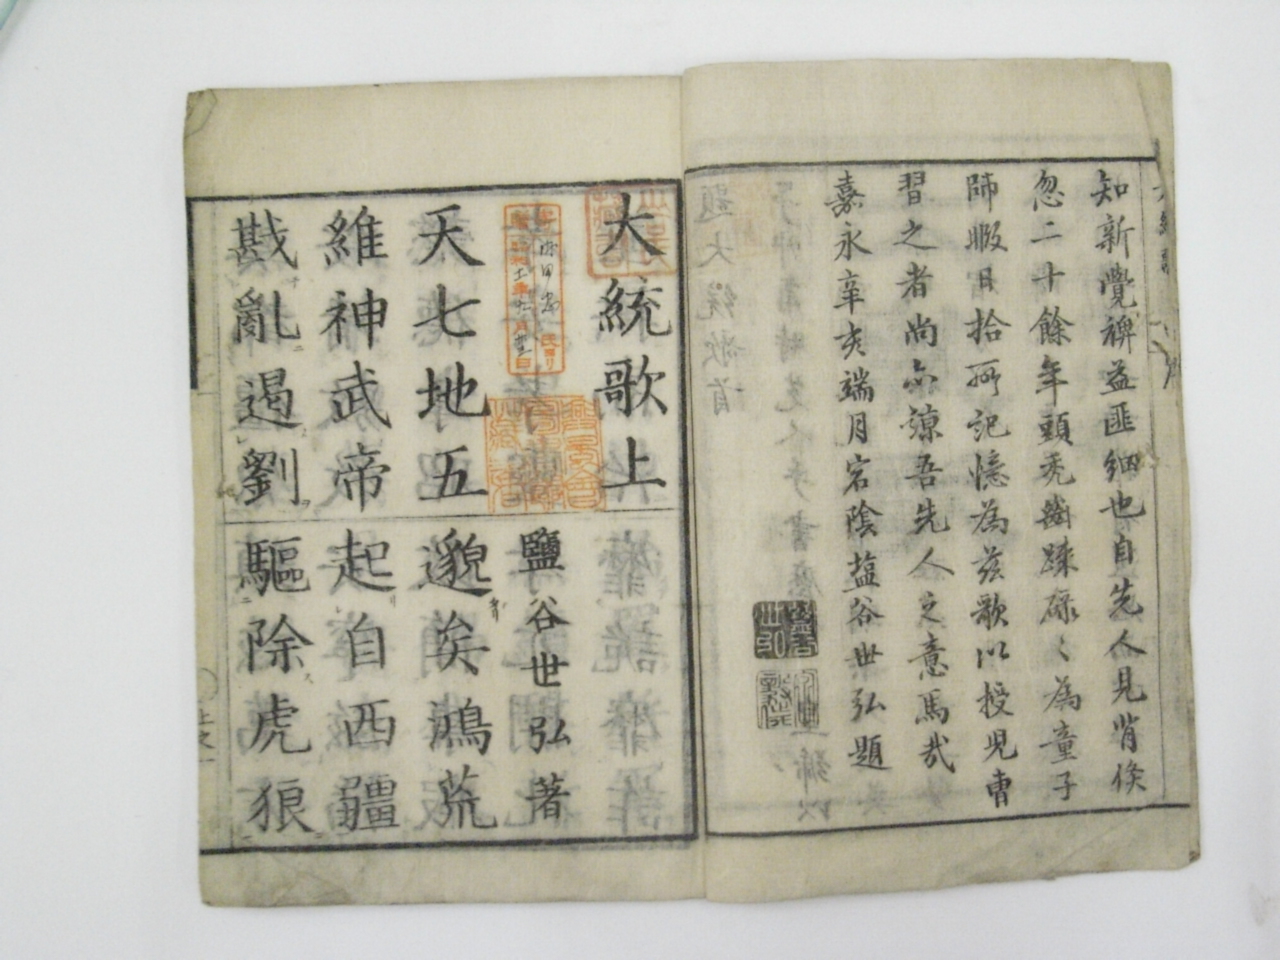 知新覺裨益匪細也自先人見背倏
忽二十餘年頭禿齒踈碌々為童子
師暇日拾所記憶為茲歌以授児曹
習之者尚亦諒吾先人之意焉哉
嘉永辛亥端月宕陰盐谷世弘題
大統歌上
鹽谷世弘著
天七地五
邈矣鴻荒
維神武帝
起自西疆
戡亂遏劉
驅除虎狼